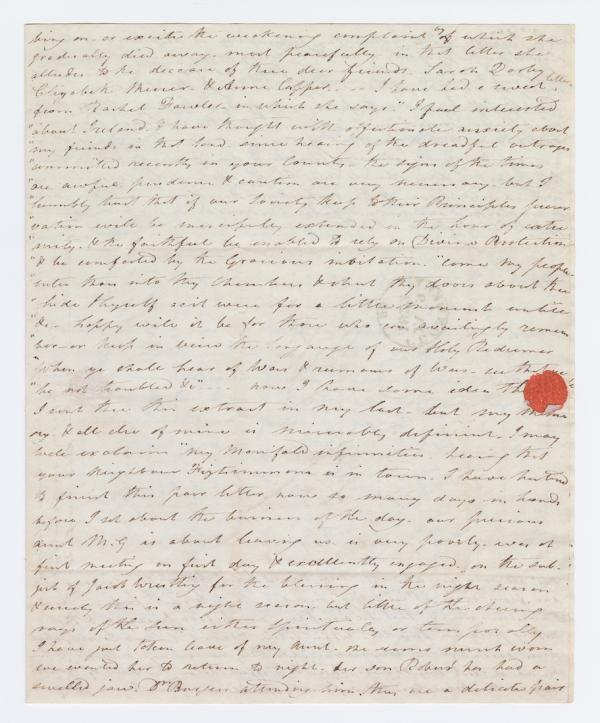 bring on or excite the weakening complaint of which she
gradually died away most peacefully in that letter she
alludes to the decease of three dear friends Sarah Darby
Elizabeth & Anne Capper. -- I have had a sweet letter
from Rachel Fowler in which she says "I feel interested
"about Ireland & have thought with affectionate anxiety about
"my friends in that land since hearing of the dreadful outrages
"committed recently in your County the signs of the times
"are awful, prudence & caution are very necessary but I
"humbly trust that if our Society keep to their Principles preser
"vation will be mercifully extended in the hour of extre
"mity. & the faithful be enabled to rely on Divine Protection
"& be comforted by the Gracious invitation "come my people
"enter thou into thy Chambers & shut thy doors about thee
"hide thyself as it were for a little moment until
"&c - happy will it be for those who can availingly remem
"ber or keep in view the language of our Holy Redeemer
"When ye shall hear of Wars & rumours of Wars see that ye
"be not troubled &c" --- now I have some idea
I sent thee this extract in my last but my mem
ory & all else of mine is miserably deficient I may
well exclaim "my Manifold infirmities. hearing that
your Neighbour Fitzsimmons is in town. I have hastened
to finish this poor letter now so many days in hand
before I set about the business of the day. our precious
aunt M.G is about leaving us is very poorly. was at
first meeting on first day & excellently engaged on the sub-
ject of Jacob Wrestling for the blessing in the night season
& surely this is a night season but little of the cheering
rays of the Sun either Spiritually or temporally
I have just taken leave of my Aunt. she seems much worn
we wanted her to return to night. her son Robert has had a
swelled jaw. Dr Burgess attending him they are a delicate pair